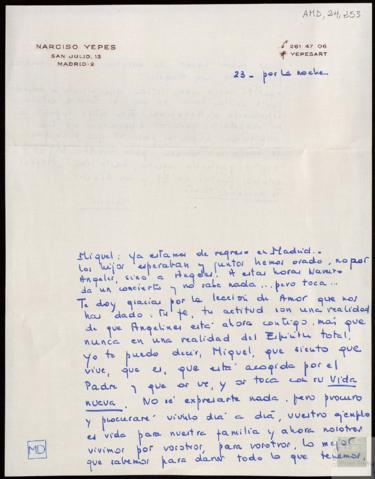 AMD, 24, 253
NARCISO YEPES
SAN JULIO, 13
MADRID-2
261 47 06
YEPESART
23 - por la noche
Miguel: ya estamos de regreso en Madrid..
los hijos esperaban y juntos hemos orado, no por
Angeles, sino a Angeles. A estas horas Narciso
da un concierto y no sabe nada... pero toca...
Te doy gracias por la lección de Amor que nos
has dado. Tu fe, tu actitud son una realidad
de que Angelines está ahora contigo, más que
nunca en una realidad del Espíritu total,
yo te puedo decir, Miguel, que siento que
vive, que es, que está acogida por el
Padre y que os ve, y os toca con su Vida
nueva. No sé expresarte nada, pero procuro
y procuraré vivirlo día a día, vuestro ejemplo
es vida para nuestra familia y ahora nosotros
vivimos por vosotros, para vosotros, lo mejor
que sabemos para daros todo lo que tenemos.
MD